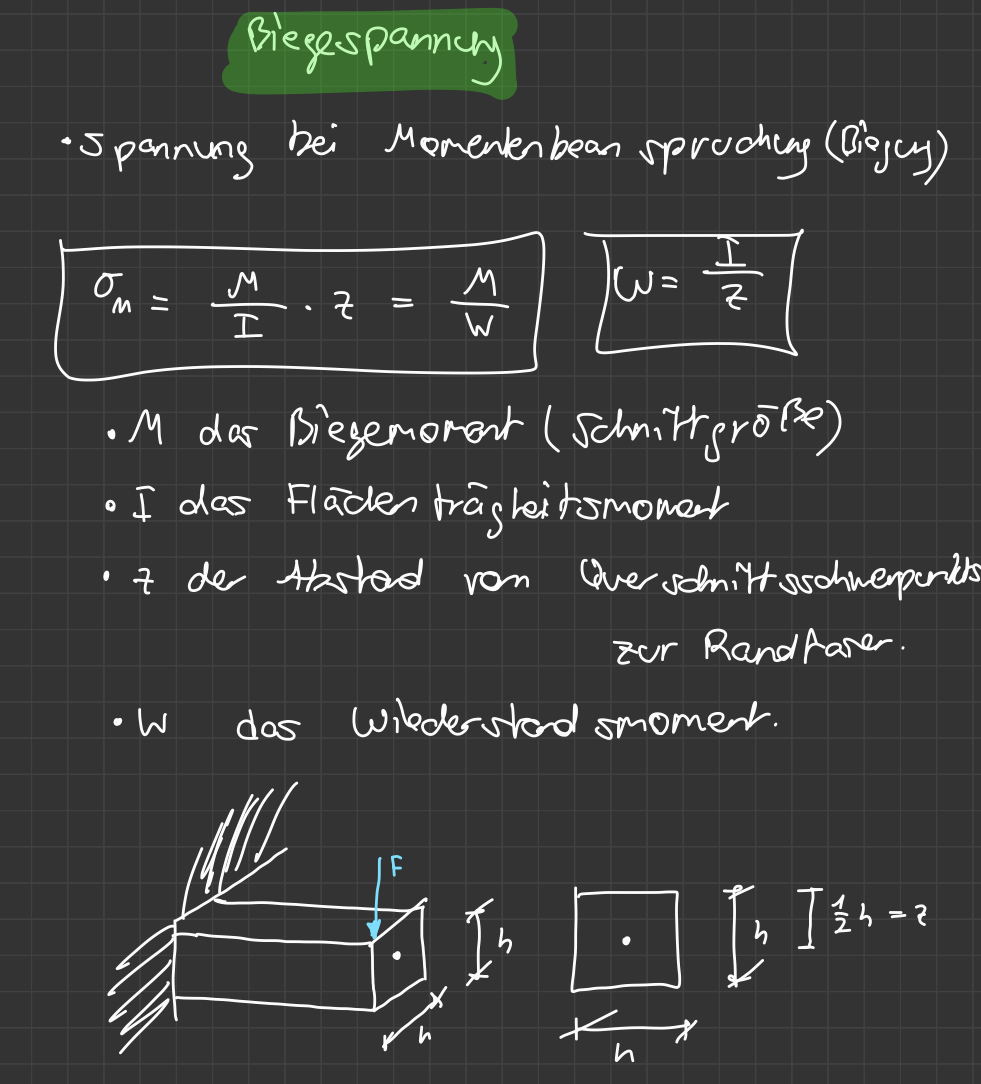 Biegespannung
• Spannung bei Momentenbeanspruchung (Biegung)
σ_M = M/I · z = M/W
W = I/z
• M das Biegemoment (Schnittgröße)
• I das Flächenträgheitsmoment
• z der Abstand vom Querschnittsschwerpunkts
zur Randfaser.
• W das Wiederstandsmoment.
F
h
h
h
1/2 h = z
h